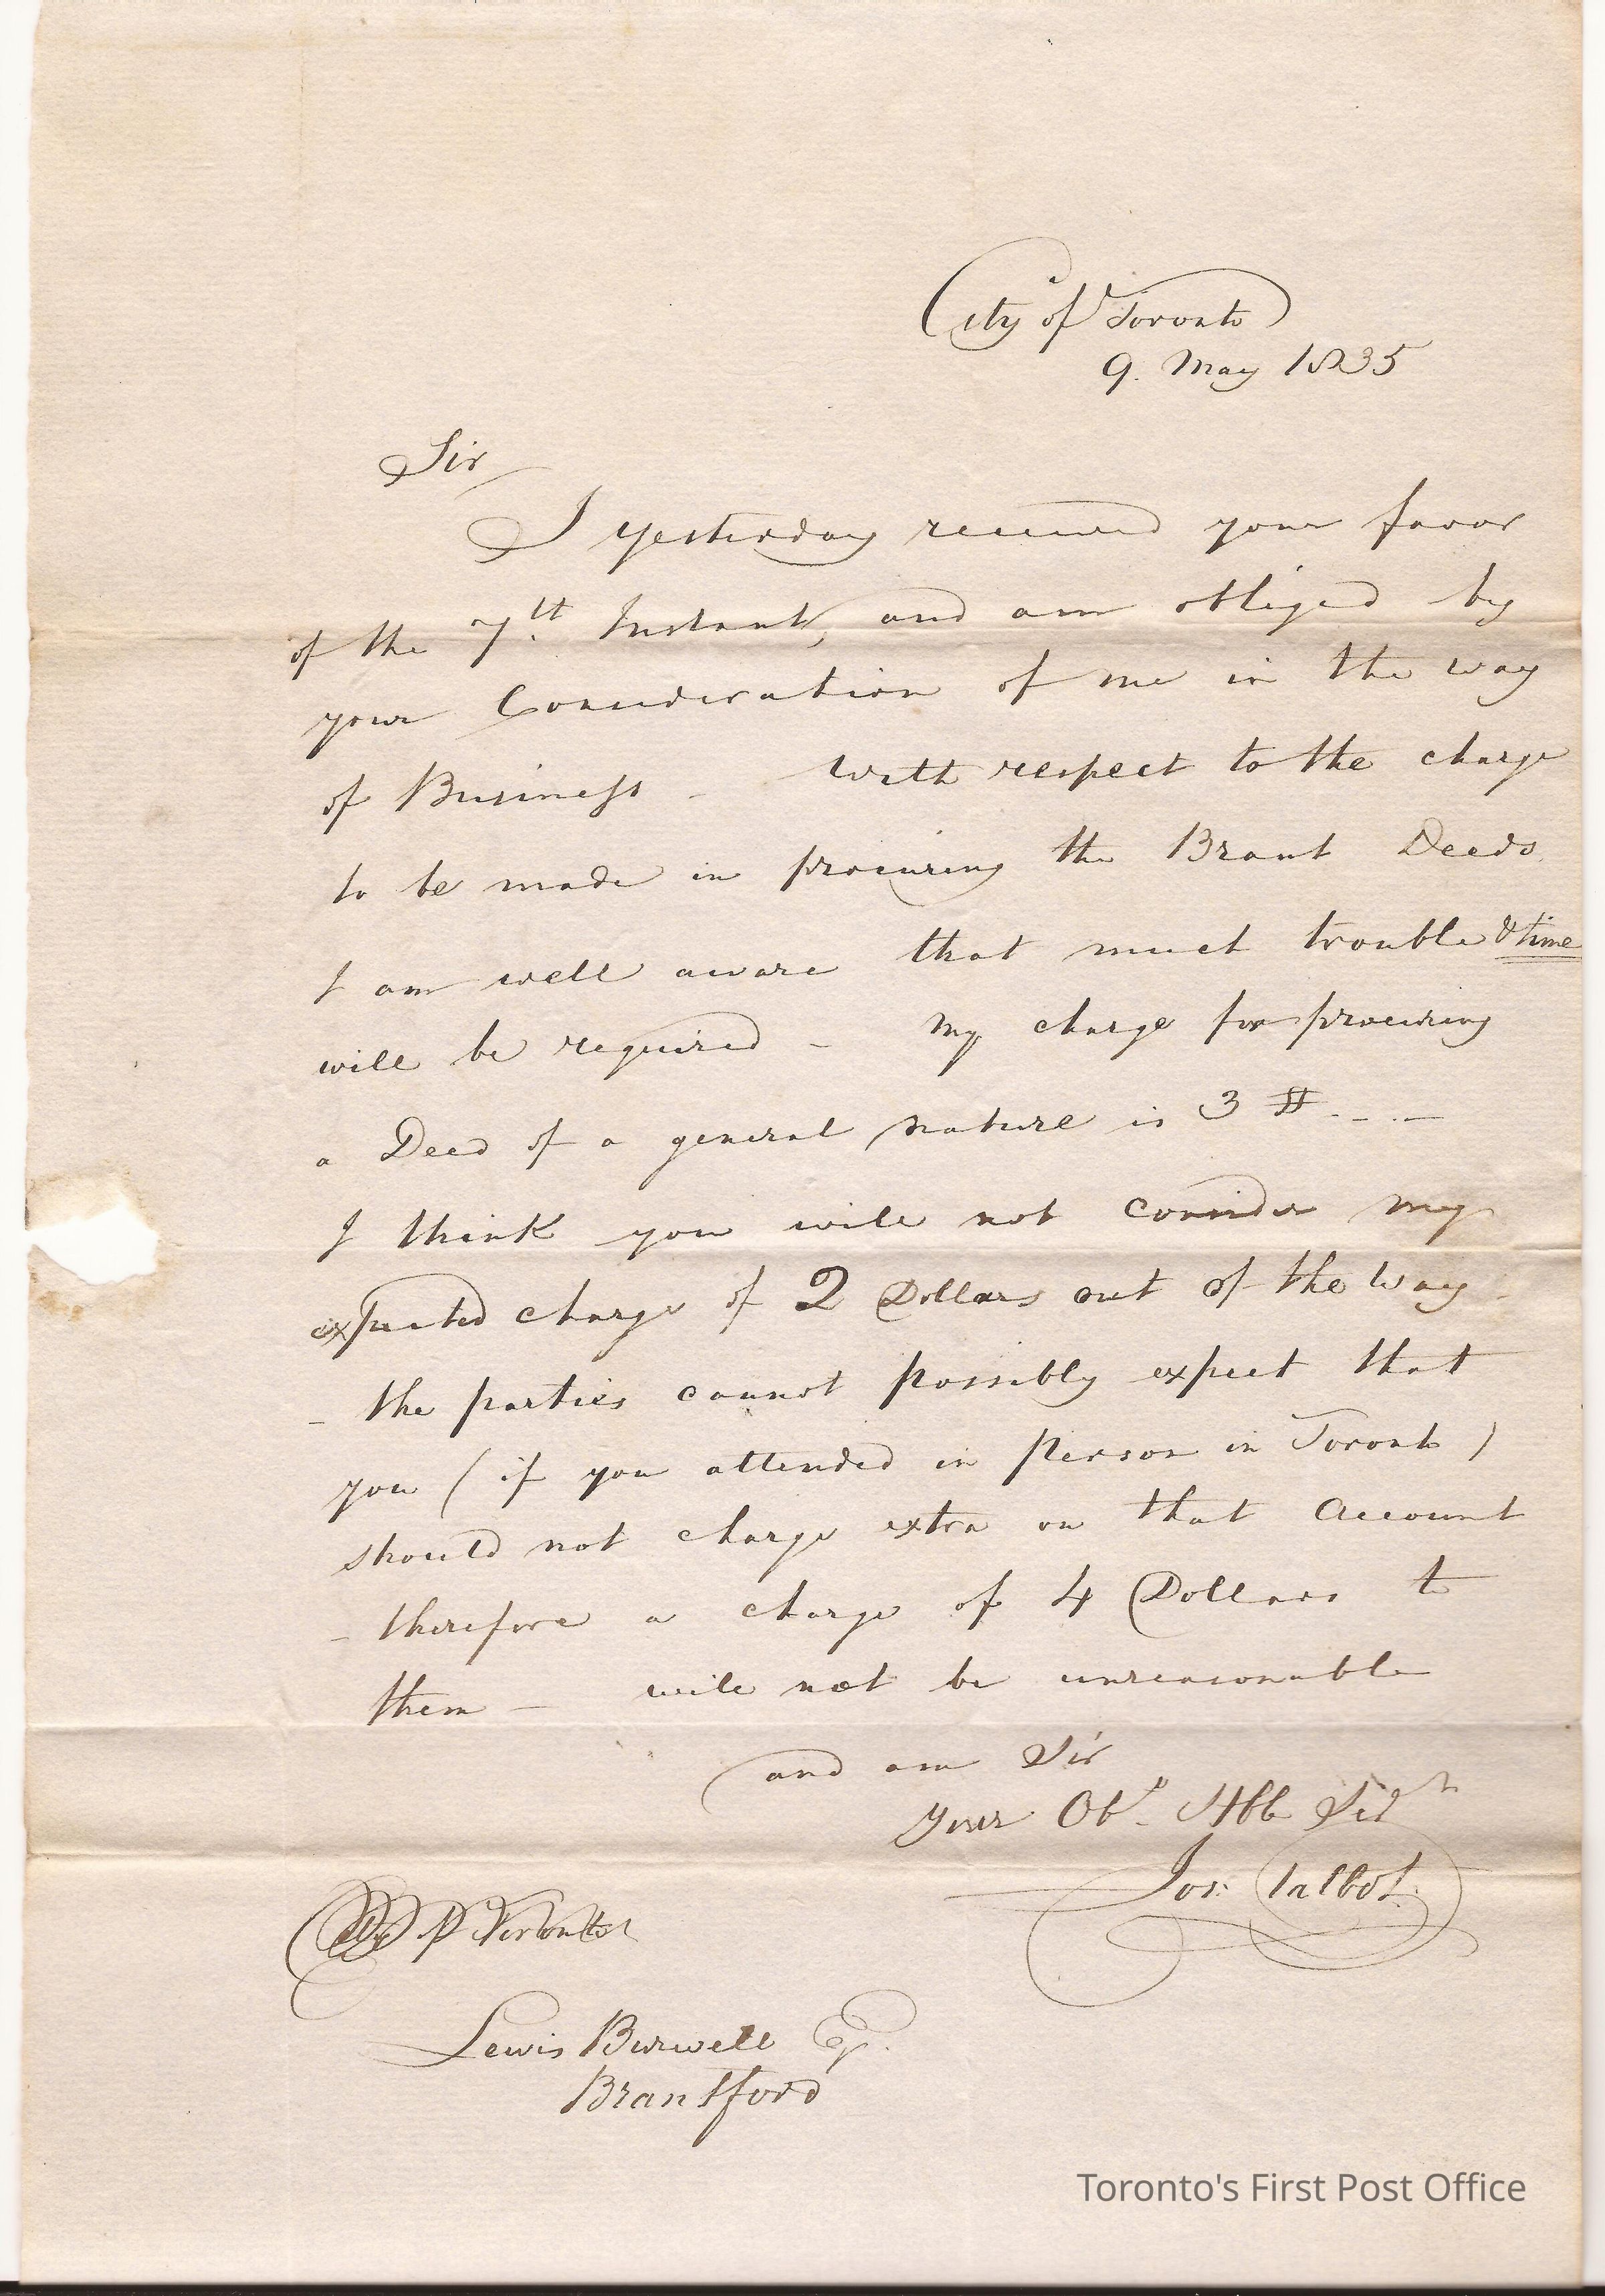 City of Toronto
9. May 1835
Sir
I yesterday received your favor
of the 7th. Instant, and am obliged by
your Consideration of me in the way
of Business - with respect to the charge
to be made in procuring the Brant Deeds
I am well aware that much trouble & time
will be required - my charge for procuring
a Deed of a general nature is 3 $ - - . -
I think you will not consider my
expected charge of 2 Dollars out of the way
- the parties cannot possibly expect that
you ( if you attended in person in Toronto )
should not charge extra on that Account
- therefore a charge of 4 Dollars to
them - will not be unreasonable
and am Sir
Your Obt. Hble Servt
Jos: Talbot.
Lewis Burwell Esq.
Brantford
Toronto's First Post Office